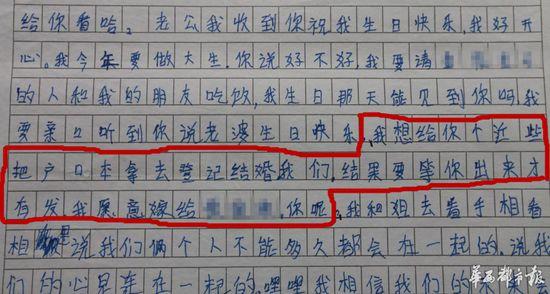 给你看哈。老公我收到你说我生日快乐,我好开
心。我今年要做大生.你说好不好.我要请
的人和我的朋友吃饮,我生日那天能见到你吗.我
要亲口听到你说老婆生日快乐.我想给你个近些
把户口本拿去登记结婚我们.结果要等你出来才
有发.我愿意嫁给 你呢,我和姐去看手相看
相 说我们俩个人不能多久都会在一起的.说我
们的心是连在一起的.哩哩我相信我们的
华西都市报